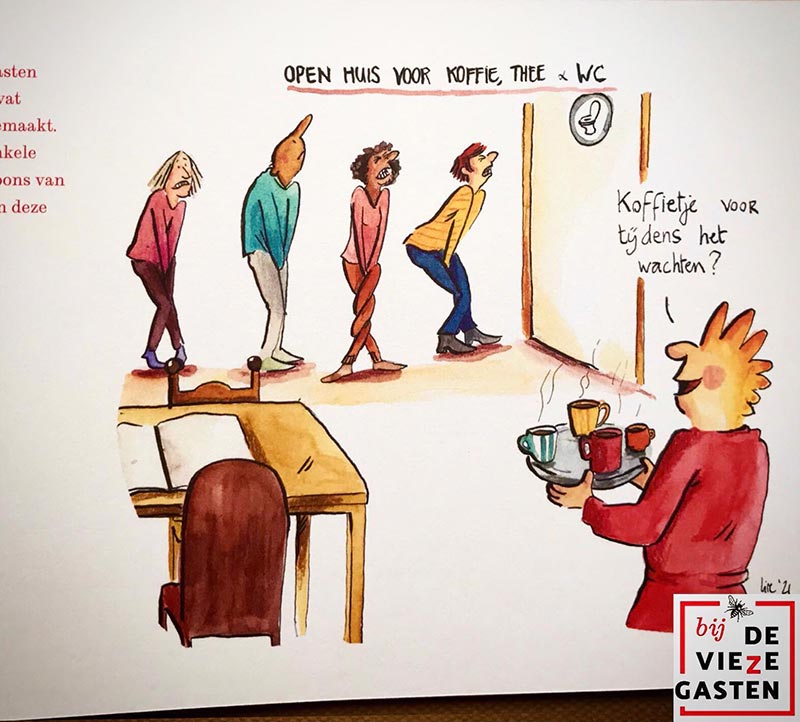 asten
vat
emaakt.
nkele
oons van
n deze
OPEN HUIS VOOR KOFFIE, THEE & WC
Koffietje voor
tijdens het
wachten?
bij DE
VIEZE
GASTEN